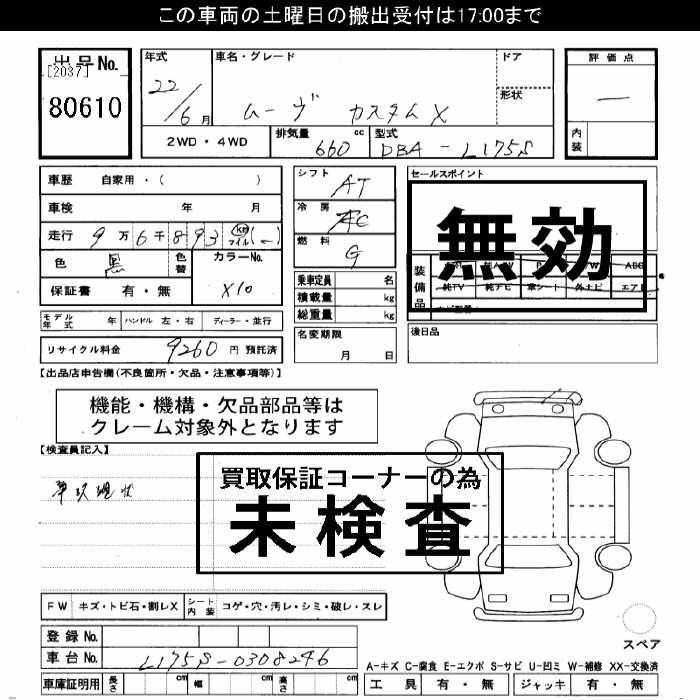 この車両の土曜日の搬出受付は17:00まで
出品No.
[2037]
80610
年式
22/6月
車名・グレード
ムーヴ カスタムX
ドア
形状
評価点
—
内装
2WD・4WD
排気量 660 cc
型式 DBA-L175S
車歴 自家用・( )
車検 年 月
走行 9万6千893 km マイル (—)
色 黒
色替
カラーNo.
X10
保証書 有・無
モデル年式 年 ハンドル 左・右 ディーラー・並行
リサイクル料金 9260 円 預託済
シフト AT
冷房 AC
燃料 G
乗車定員 名
積載量 kg
総重量 kg
名変期限
月 日
セールスポイント
無効
装備品
純TV 純ナビ 革シート 外ナビ エアB
後日品
【出品店申告欄(不良箇所・欠品・注意事項等)】
機能・機構・欠品部品等は
クレーム対象外となります
【検査員記入】
買取保証コーナーの為
未検査
FW キズ・トビ石・割レX シート内装 コゲ・穴・汚レ・シミ・破レ・スレ
登録No.
車台No. L175S-0308246
車庫証明用 長さ cm 幅 cm 高さ cm
スペア
A-キズ C-腐食 E-エクボ S-サビ U-凹ミ W-補修 XX-交換済
工具 有・無 ジャッキ 有・無